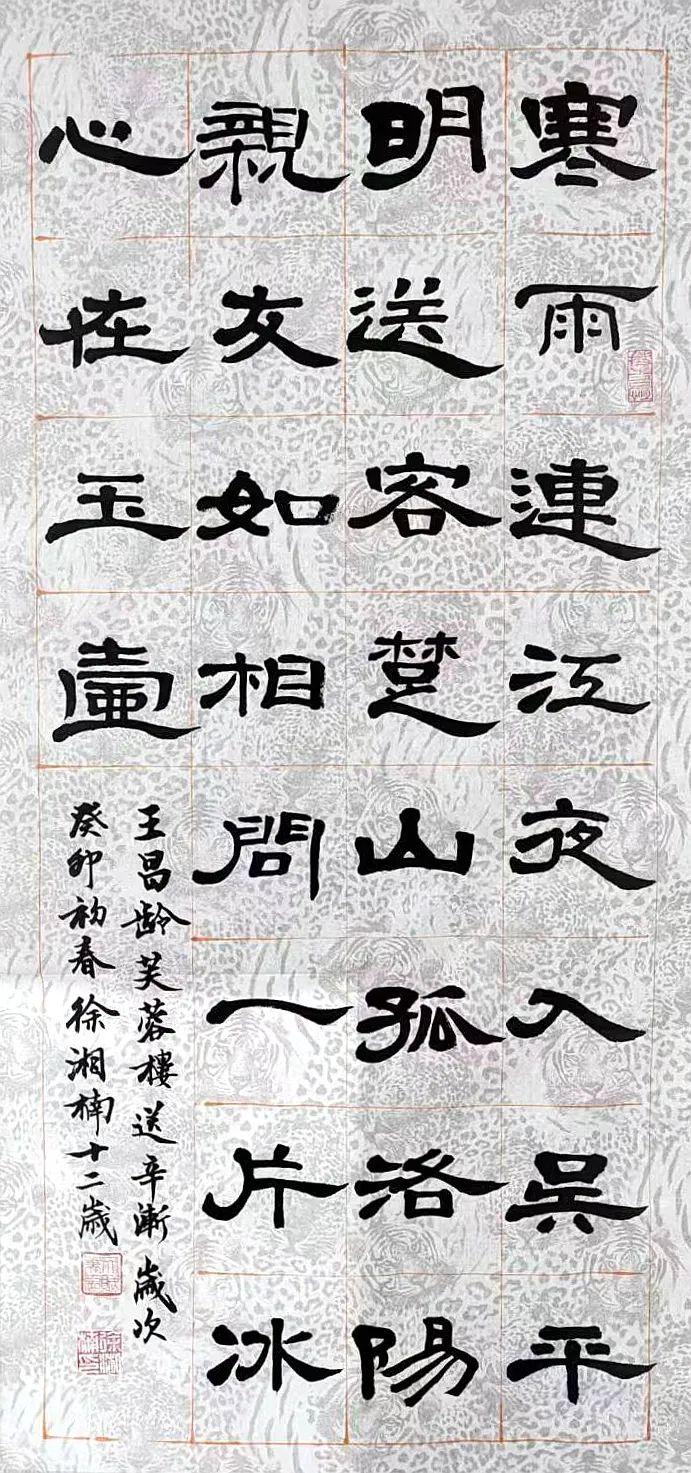 寒雨連江夜入吳平
明送客楚山孤洛陽
親友如相問一片冰
心在玉壺
王昌齡芙蓉樓送辛漸歲次
癸卯初春徐湘楠十二歲